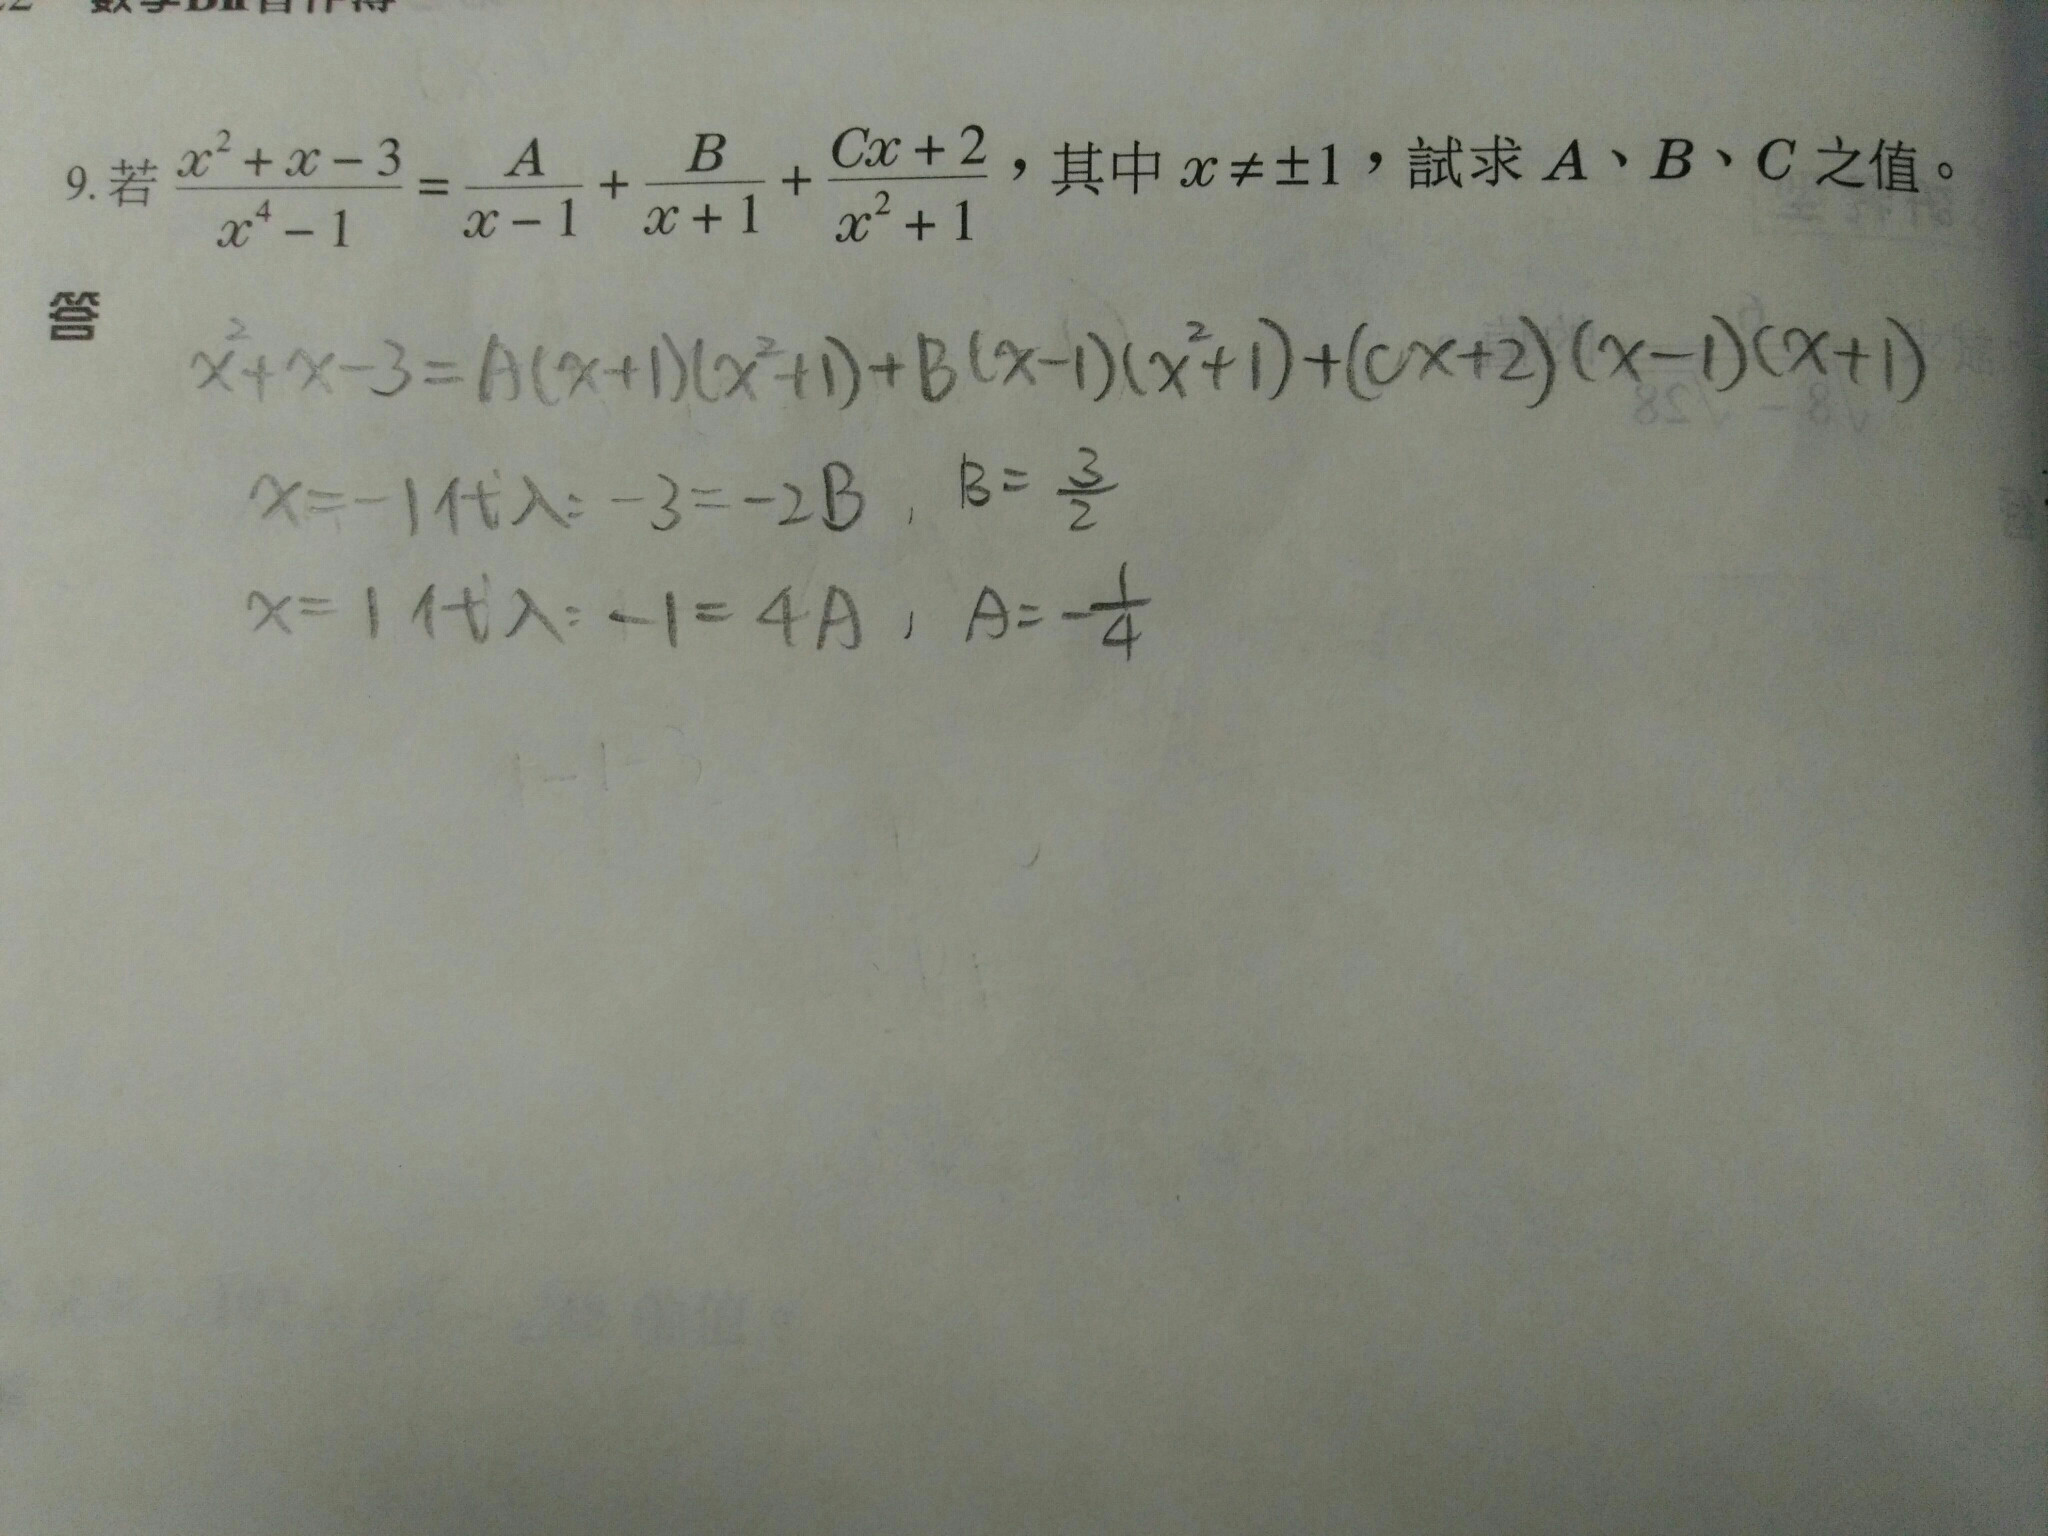 數學BII習作簿
9. 若 \frac{x^2+x-3}{x^4-1} = \frac{A}{x-1} + \frac{B}{x+1} + \frac{Cx+2}{x^2+1}，其中 x≠±1，試求 A、B、C 之值。
答
x^2+x-3=A(x+1)(x^2+1)+B(x-1)(x^2+1)+(Cx+2)(x-1)(x+1)
x=-1代入：-3=-2B，B=\frac{3}{2}
x=1代入：-1=4A，A=-\frac{1}{4}